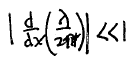 |d/dx(λ/2π)| << 1